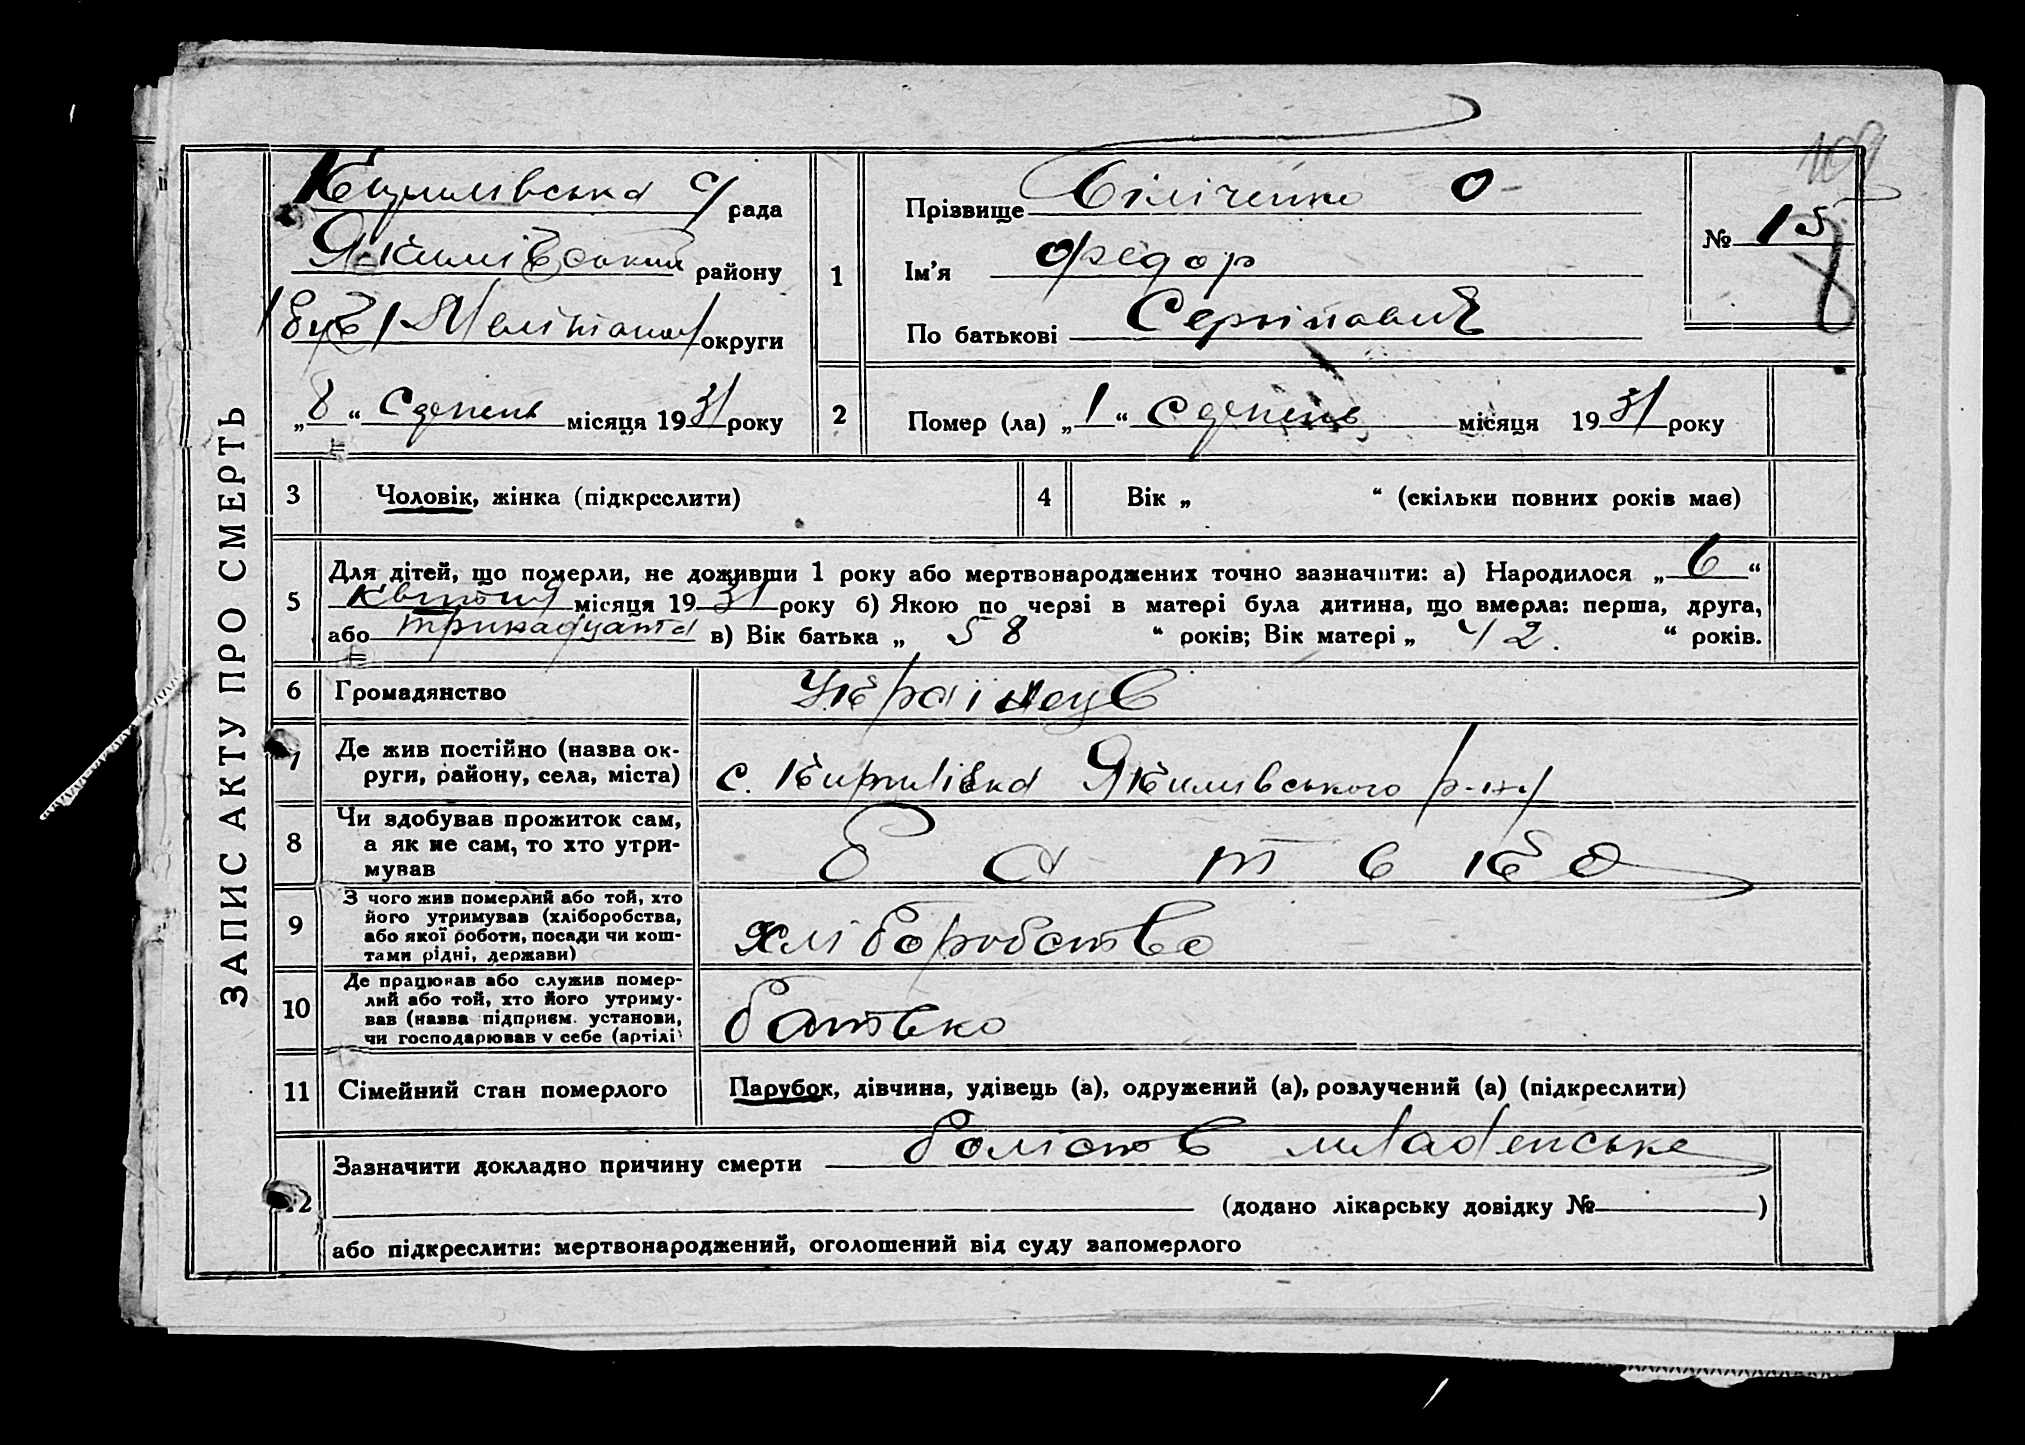 ЗАПИС АКТУ ПРО СМЕРТЬ
с/ рада
Якимівський району
округи
„ 8 “ Серпень місяця 1931 року
1
Прізвище Біліченко
Ім’я Федор
По батькові
№ 15
2
Помер (ла) „ 1 “ Серпень місяця 1931 року
3 Чоловік, жінка (підкреслити)
4 Вік „ “ (скільки повних років має)
5
Для дітей, що померли, не доживши 1 року або мертвонароджених точно зазначити: а) Народилося „ 6 “
Квітня місяця 1931 року б) Якою по черзі в матері була дитина, що вмерла: перша, друга,
або тринадцята в) Вік батька „ 58 “ років; Вік матері „ 42. “ років.
6 Громадянство Українець
7 Де жив постійно (назва ок-
руги, району, села, міста) с. Кирилівка Якимівського р-ну
8 Чи здобував прожиток сам,
а як не сам, то хто утри-
мував Батько
9 З чого жив померлий або той, хто
його утримував (хліборобства,
або якої роботи, посади чи кош-
тами рідні, держави) хліборобство
10 Де працював або служив помер-
лий або той, хто його утриму-
вав (назва підприєм. установи,
чи господарював у себе (артілі) батько
11 Сімейний стан померлого Парубок, дівчина, удівець (а), одружений (а), розлучений (а) (підкреслити)
12
Зазначити докладно причину смерти
(додано лікарську довідку № )
або підкреслити: мертвонароджений, оголошений від суду запомерлого